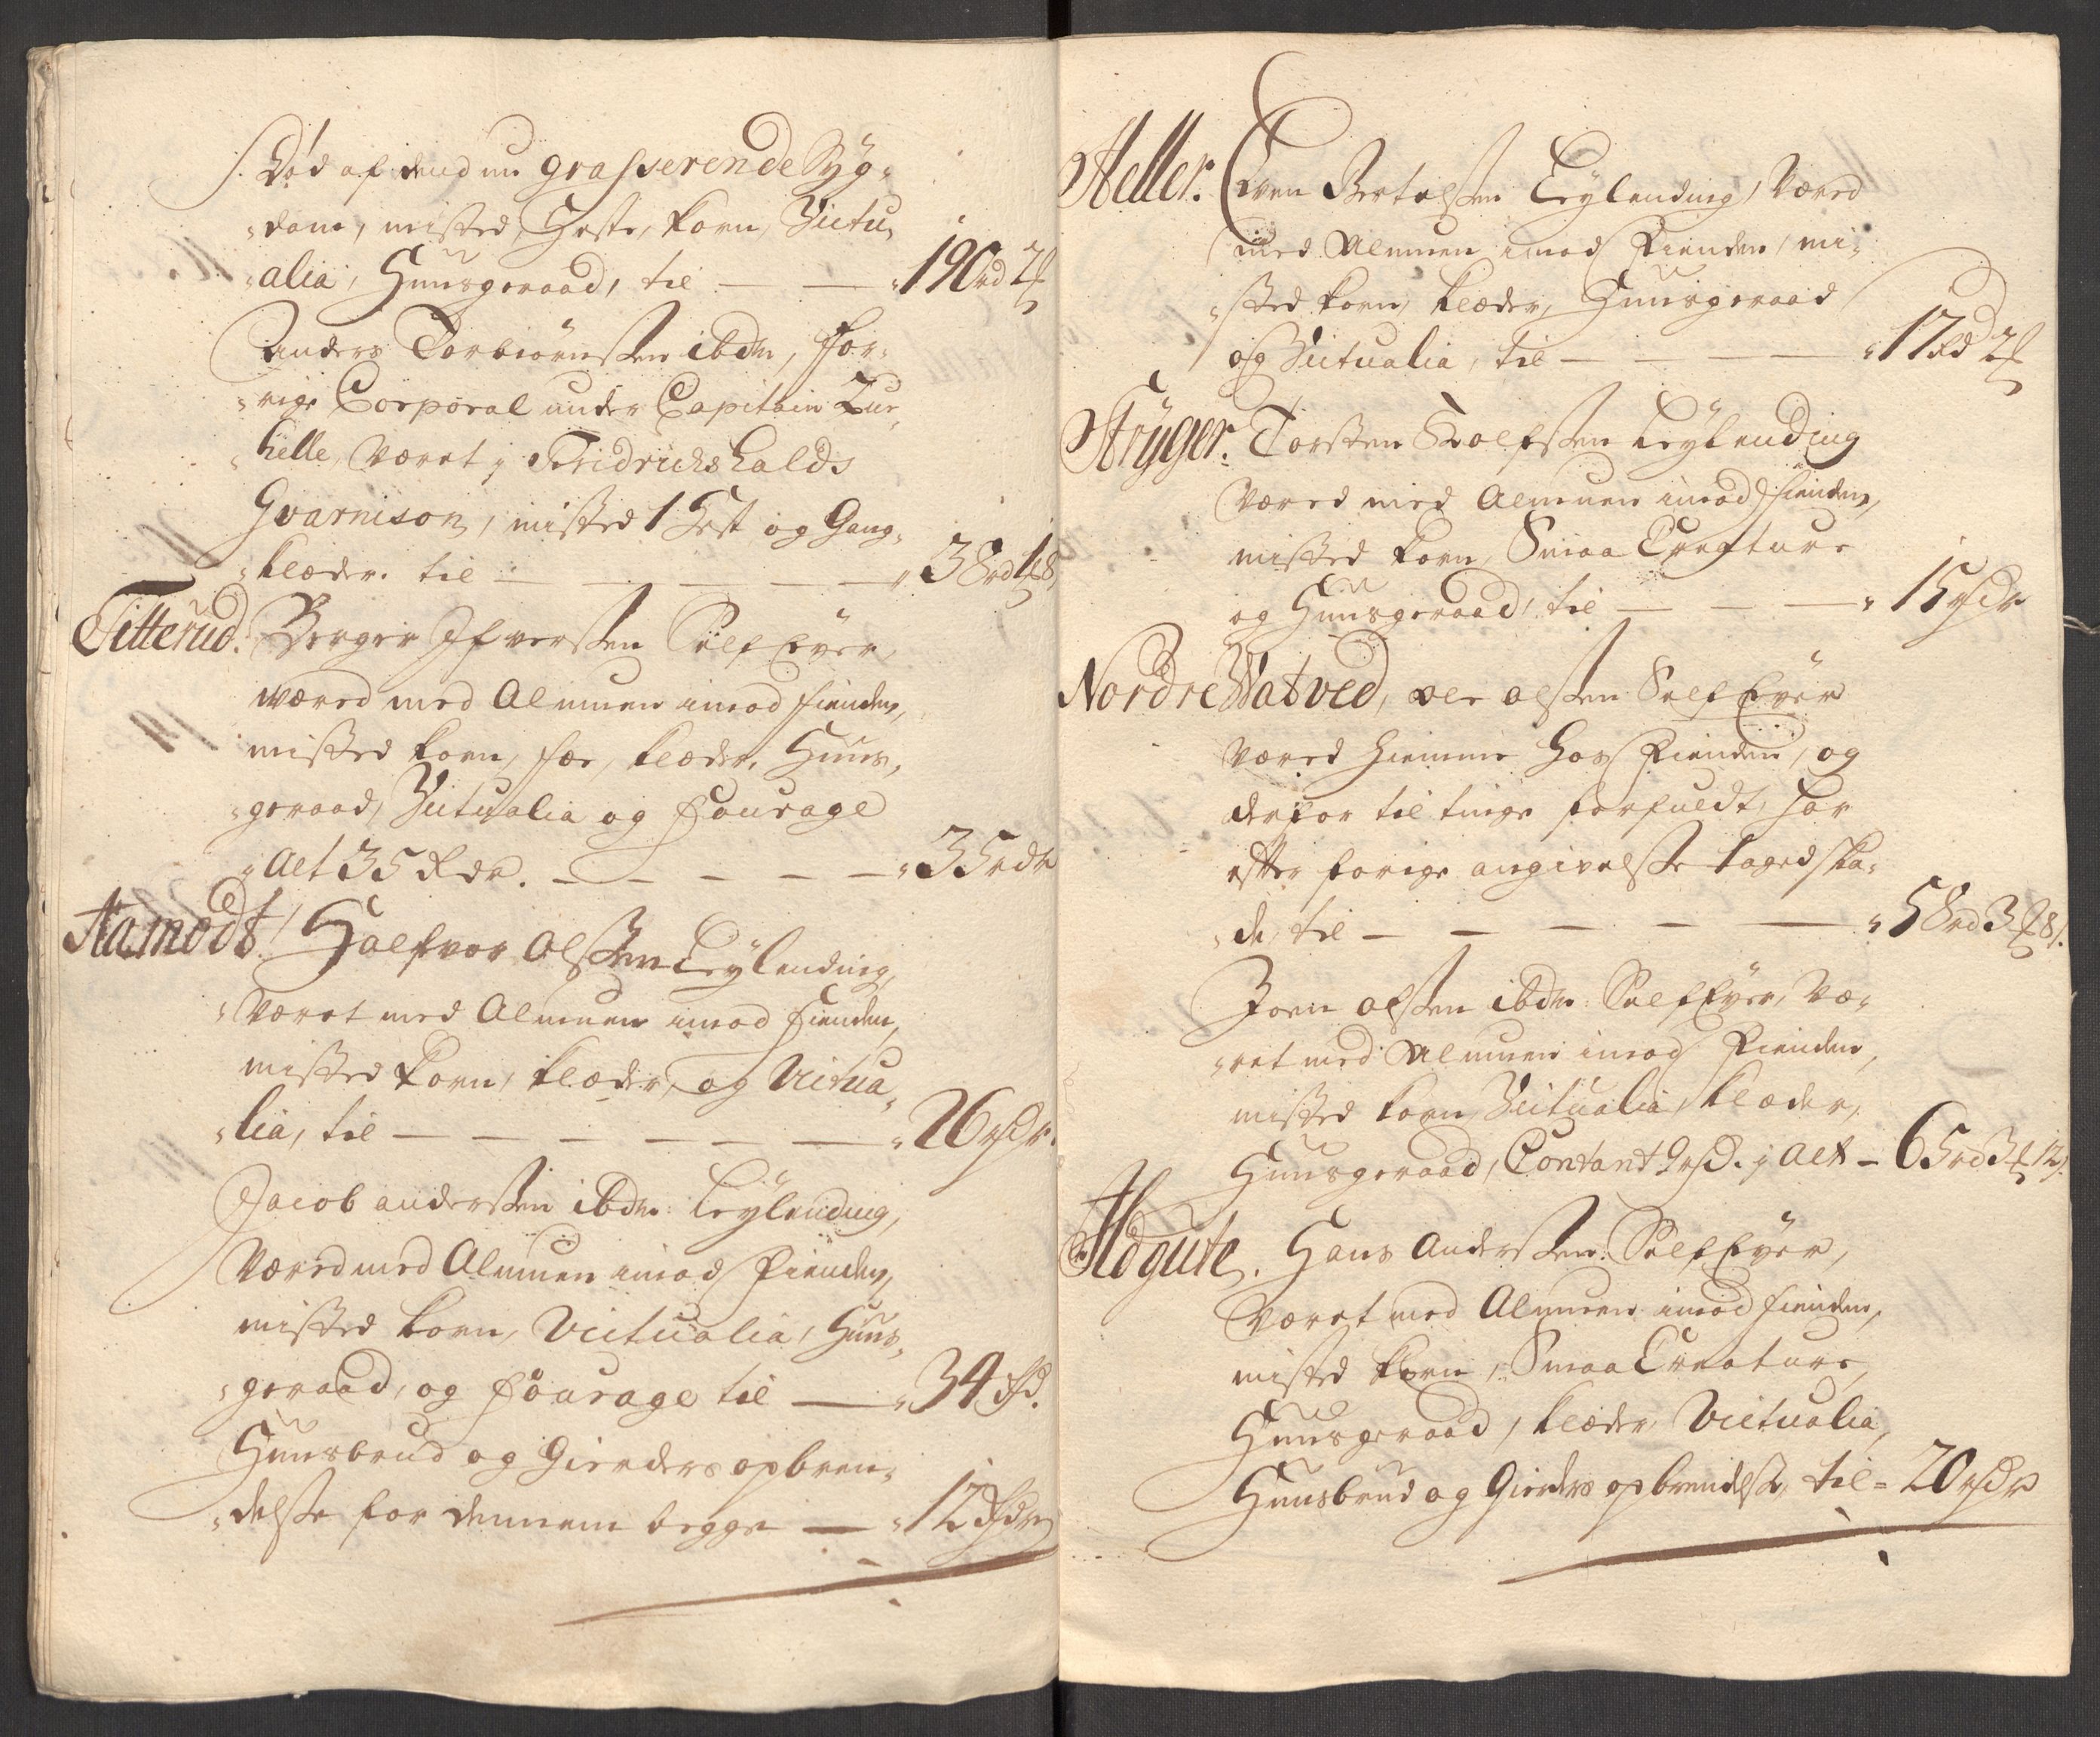 Død af dend nu grasserende Syg-
dom, misted Heste, Korn, Victu-
alia, Huusgeraad, til — — 190 rd 2
Anders Torbiörnsen ibdm, for-
rige Corporal under Capitain Zur
helle, været i Fridrichshalds
Gvarnison, misted 1 Hest og Gang-
klæder. til — — — — 38 rd 1 8
Titterud. Berger Ifversen Self Eyer
wæred med Almuen imod Fienden,
misted Korn, Fæe, klæder, Huus-
geraad, Victualia og Fourage
Alt 35 Rdr. — — — — — 35 rdr
Aamodt. Halfvor Olsen Leylending,
været med Almuen imod Fienden,
misted Korn, klæder, og Victua-
lia, til — — — — — — 26 rdr.
Jacob Andersen ibdm Leylending,
Væred med Almuen imod Fienden,
misted Korn, Victualia, Huus-
geraad, og Fourage til — 34 Rd.
Huusbrud og Gierders opbren-
delse for dennem begge — 12 Rdr
Heller. Even Bertelsen Leylending, Væred
med Almuen imod Fienden, mi-
sted Korn, klæder, Huusgeraad
og Victualia, til — — — 17 Rd 2
Stryger. Torsten Rolfsen Leylending
Væred med Almuen imod Fienden,
misted Korn, Smaa Creature
og Huusgeraad, til — — — 15 rdr
Nordre Watved, Ole Olsen Self Eyer
Væred hiemme hos Fienden, og
derfor til tinge forfuldt, har
efter forige angivelse taged ska-
de, til — — — — — 58 rd 3 8
Joen Olsen ibdm Self Eyer, Væ-
ret med Almuen imod Fienden,
misted Korn, Victualia, klæder,
Huusgeraad, Contant 9 rd. i Alt — 65 rd 3 12
Aldgute. Hans Andersen Self Eyer,
Været med Almuen imod Fienden,
misted Korn, Smaa Creature,
Huusgeraad, klæder, Victualia,
Huusbrud og Gierders opbrendelse, til = 20 rdr